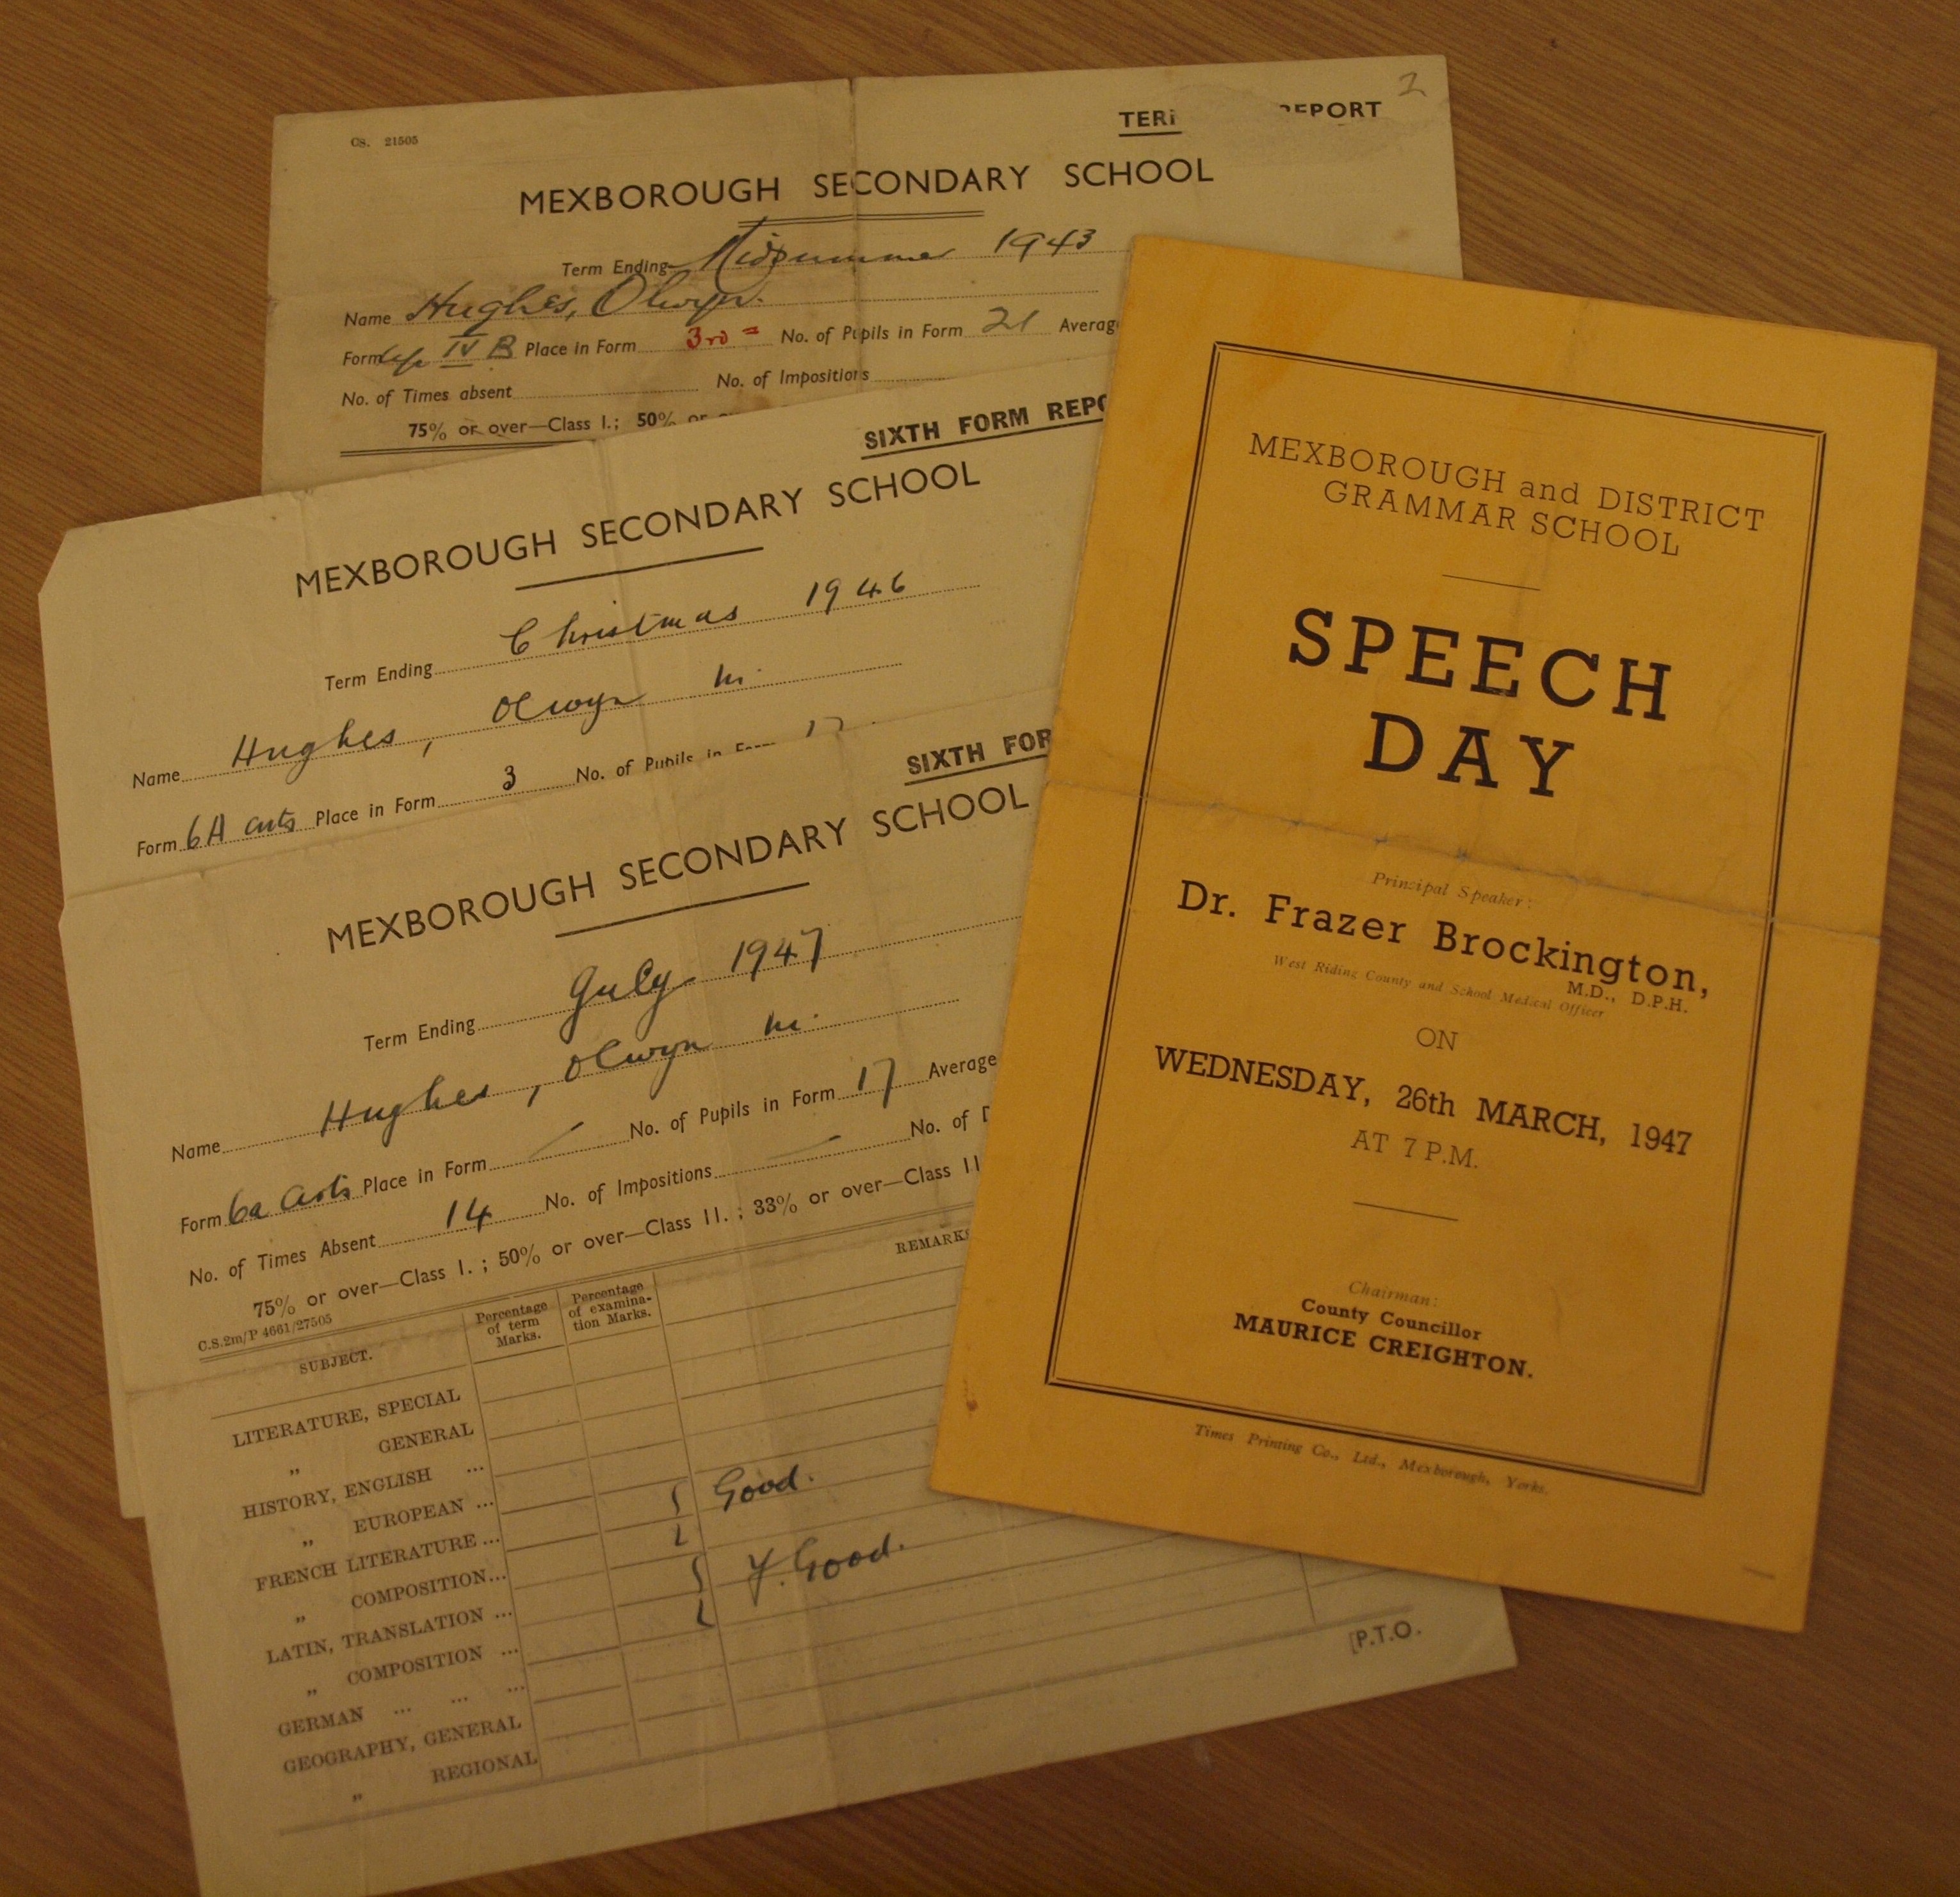 2
CS. 21505
TERM REPORT
MEXBOROUGH SECONDARY SCHOOL
Term Ending Midsummer 1943
Name Hughes, Olwyn.
Form Up IV B Place in Form 3rd = No. of Pupils in Form 21 Average
No. of Times absent No. of Impositions
75% or over—Class I.; 50% or
SIXTH FORM REPO
MEXBOROUGH SECONDARY SCHOOL
Term Ending Christmas 1946
Name Hughes, Olwyn M.
Form 6A arts Place in Form 3 No. of Pupils in Form 17
SIXTH FOR
MEXBOROUGH SECONDARY SCHOOL
Term Ending July 1947
Name Hughes, Olwyn M.
Form 6a Arts Place in Form No. of Pupils in Form 17 Average
No. of Times Absent 14 No. of Impositions No. of D
75% or over—Class I. ; 50% or over—Class II. ; 33% or over—Class II
C.S.2m/P 4661/27505
SUBJECT. Percentage of term Marks. Percentage of examina-tion Marks. REMARKS
LITERATURE, SPECIAL
„ GENERAL
HISTORY, ENGLISH ...
„ EUROPEAN ...
FRENCH LITERATURE ... Good.
„ COMPOSITION...
LATIN, TRANSLATION ... V. Good.
„ COMPOSITION ...
GERMAN ... ... ...
GEOGRAPHY, GENERAL
„ REGIONAL
[P.T.O.
MEXBOROUGH and DISTRICT
GRAMMAR SCHOOL
SPEECH
DAY
Principal Speaker:
Dr. Frazer Brockington,
M.D., D.P.H.
West Riding County and School Medical Officer
ON
WEDNESDAY, 26th MARCH, 1947
AT 7 P.M.
Chairman:
County Councillor
MAURICE CREIGHTON.
Times Printing Co., Ltd., Mexborough, Yorks.